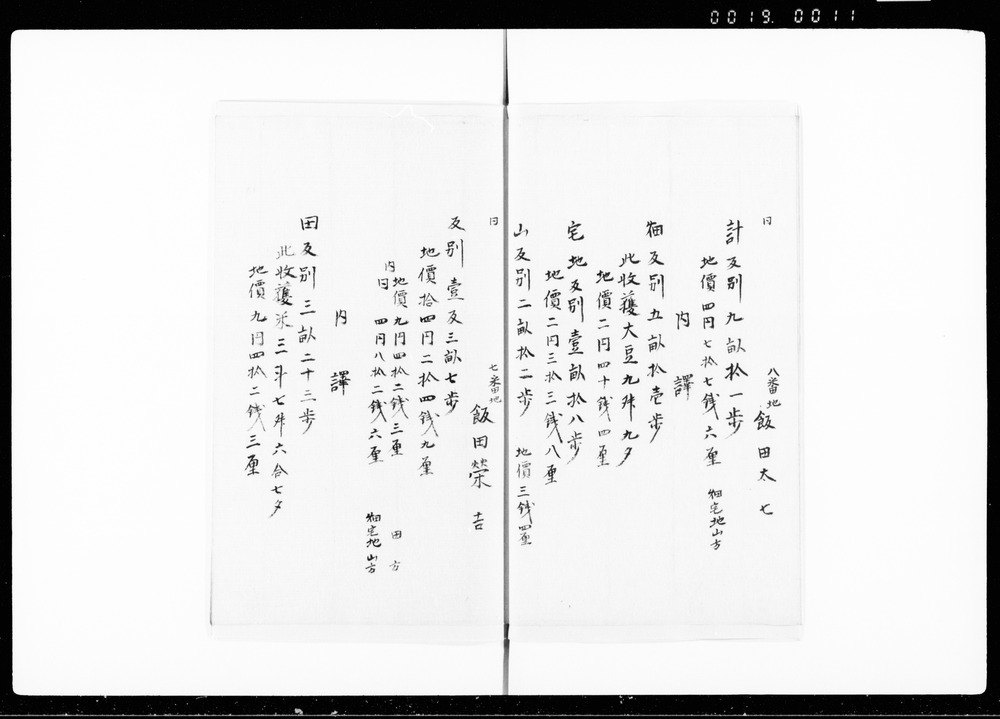 0019. 0011
同
八番地 飯田太七
計反別九畝拾一歩
地價四円七拾七銭六厘 畑宅地山方
内譯
畑反別五畝拾壱歩
此收獲大豆九舛九夕
地價二円四十銭四厘
宅地反別壹畝拾八歩
地價二円三拾三銭八厘
山反別二畝拾二歩 地價三銭四厘
同
七番地 飯田榮吉
反別壹反三畝七歩
地價拾四円二拾四銭九厘
内 地價九円四拾二銭三厘 田方
同 四円八拾二銭六厘 畑宅地山方
内譯
田反別三畝二十三歩
此收獲米三斗七舛六合七夕
地價九円四拾二銭三厘